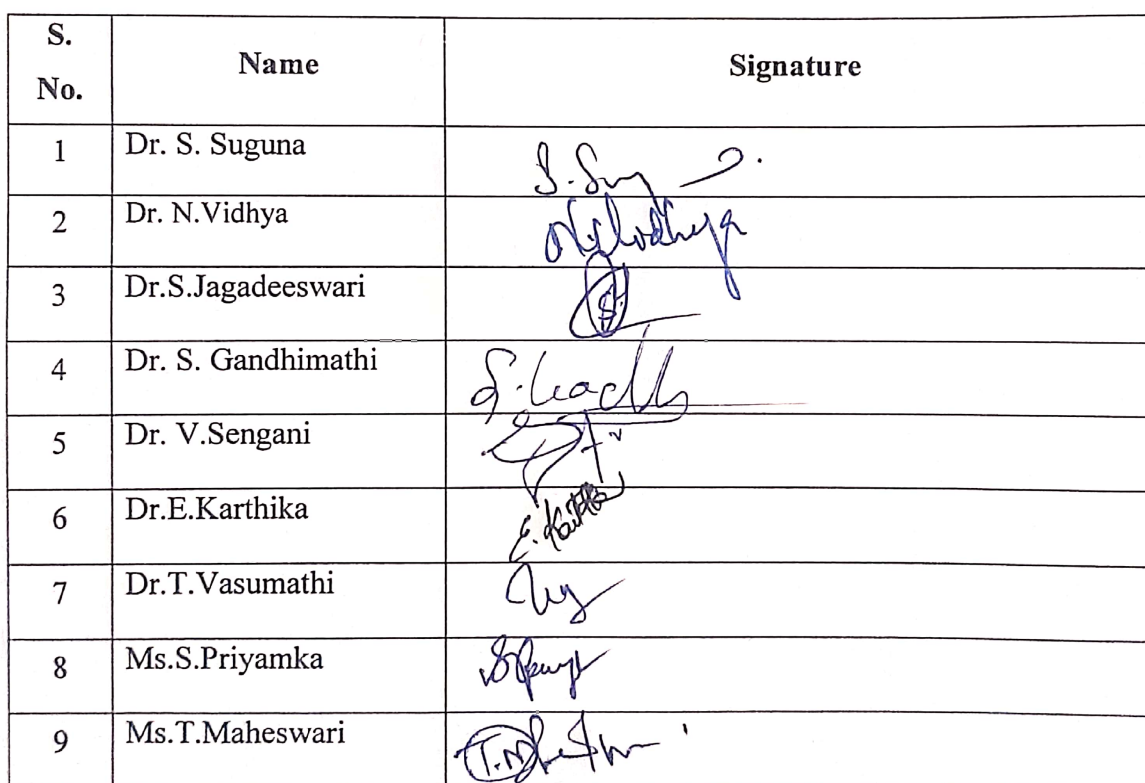 S. No. Name Signature
1 Dr. S. Suguna S. Sug
2 Dr. N.Vidhya N. Vidhya
3 Dr.S.Jagadeeswari S.
4 Dr. S. Gandhimathi
5 Dr. V.Sengani
6 Dr.E.Karthika E. Karthika
7 Dr.T.Vasumathi
8 Ms.S.Priyamka
9 Ms.T.Maheswari